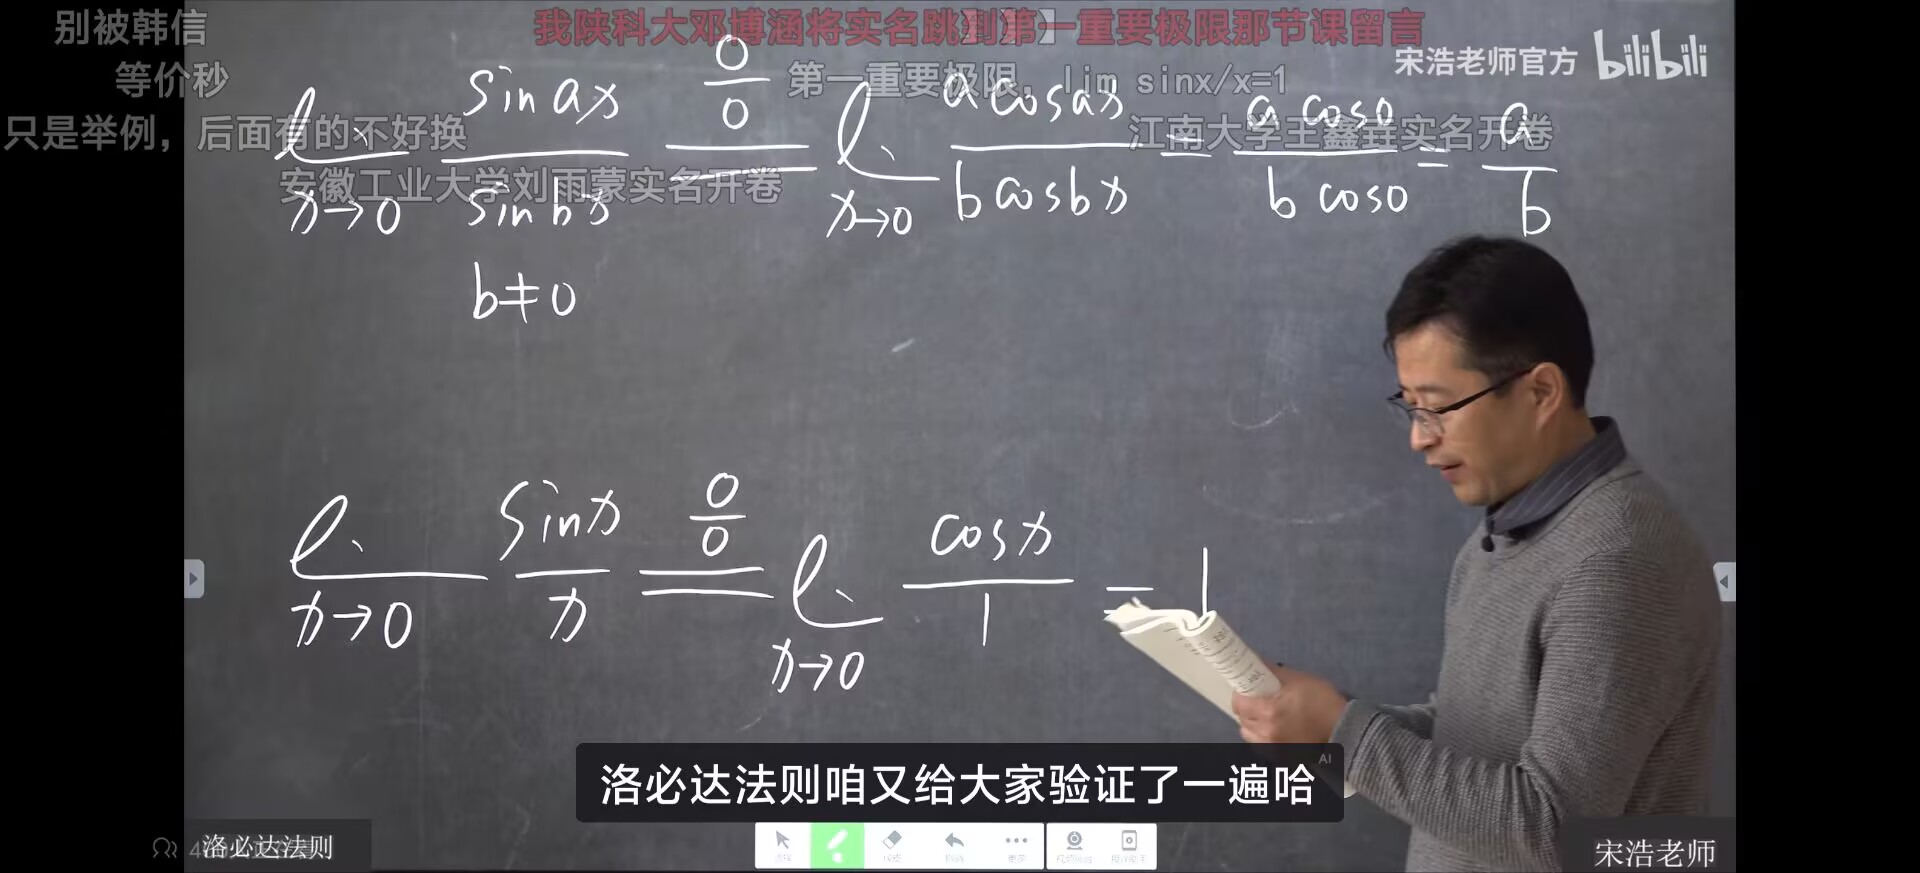 别被韩信
我陕科大邓博涵将实名跳到第一重要极限那节课留言
宋浩老师官方 bilibili
等价秒
第一重要极限，lim sinx/x=1
只是举例，后面有的不好换
江南大学王鑫垚实名开卷
安徽工业大学刘雨蒙实名开卷
lim x→0 sin ax / sin bx =(0/0) lim x→0 a cos ax / b cos bx = a cos0 / b cos0 = a / b
b≠0
lim x→0 sin x / x =(0/0) lim x→0 cos x / 1 = 1
洛必达法则咱又给大家验证了一遍哈
AI
洛必达法则
更多
宋浩老师